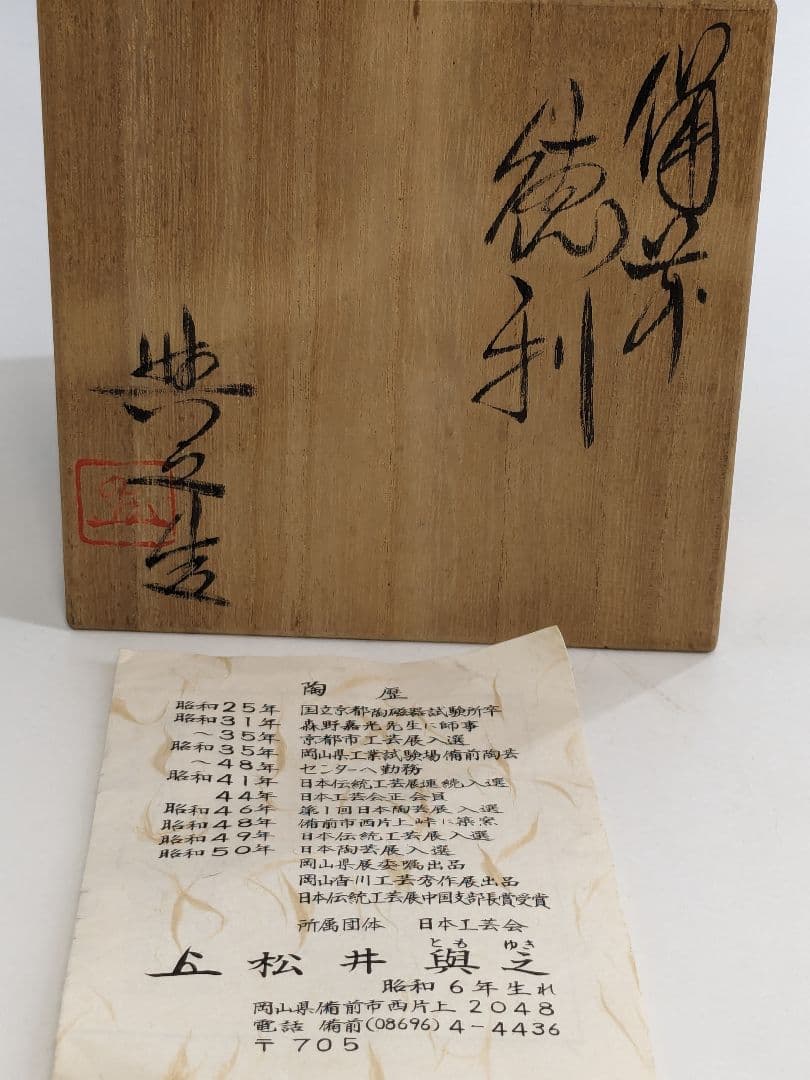 備前
徳利
與之造
陶 歴
昭和25年 国立京都陶磁器試験所卒
昭和31年 森野嘉光先生に師事
～35年 京都市工芸展入選
昭和35年 岡山県工業試験場備前陶芸
～48年 センターへ勤務
昭和41年 日本伝統工芸展連続入選
44年 日本工芸会正会員
昭和46年 第1回日本陶芸展入選
昭和48年 備前市西片上峠に築窯
昭和49年 日本伝統工芸展入選
昭和50年 日本陶芸展入選
岡山県展委嘱出品
岡山香川工芸秀作展出品
日本伝統工芸展中国支部長賞受賞
所属団体 日本工芸会
とも ゆき
松井與之
昭和6年生れ
岡山県備前市西片上2048
電話 備前(08696)4-4436
〒705